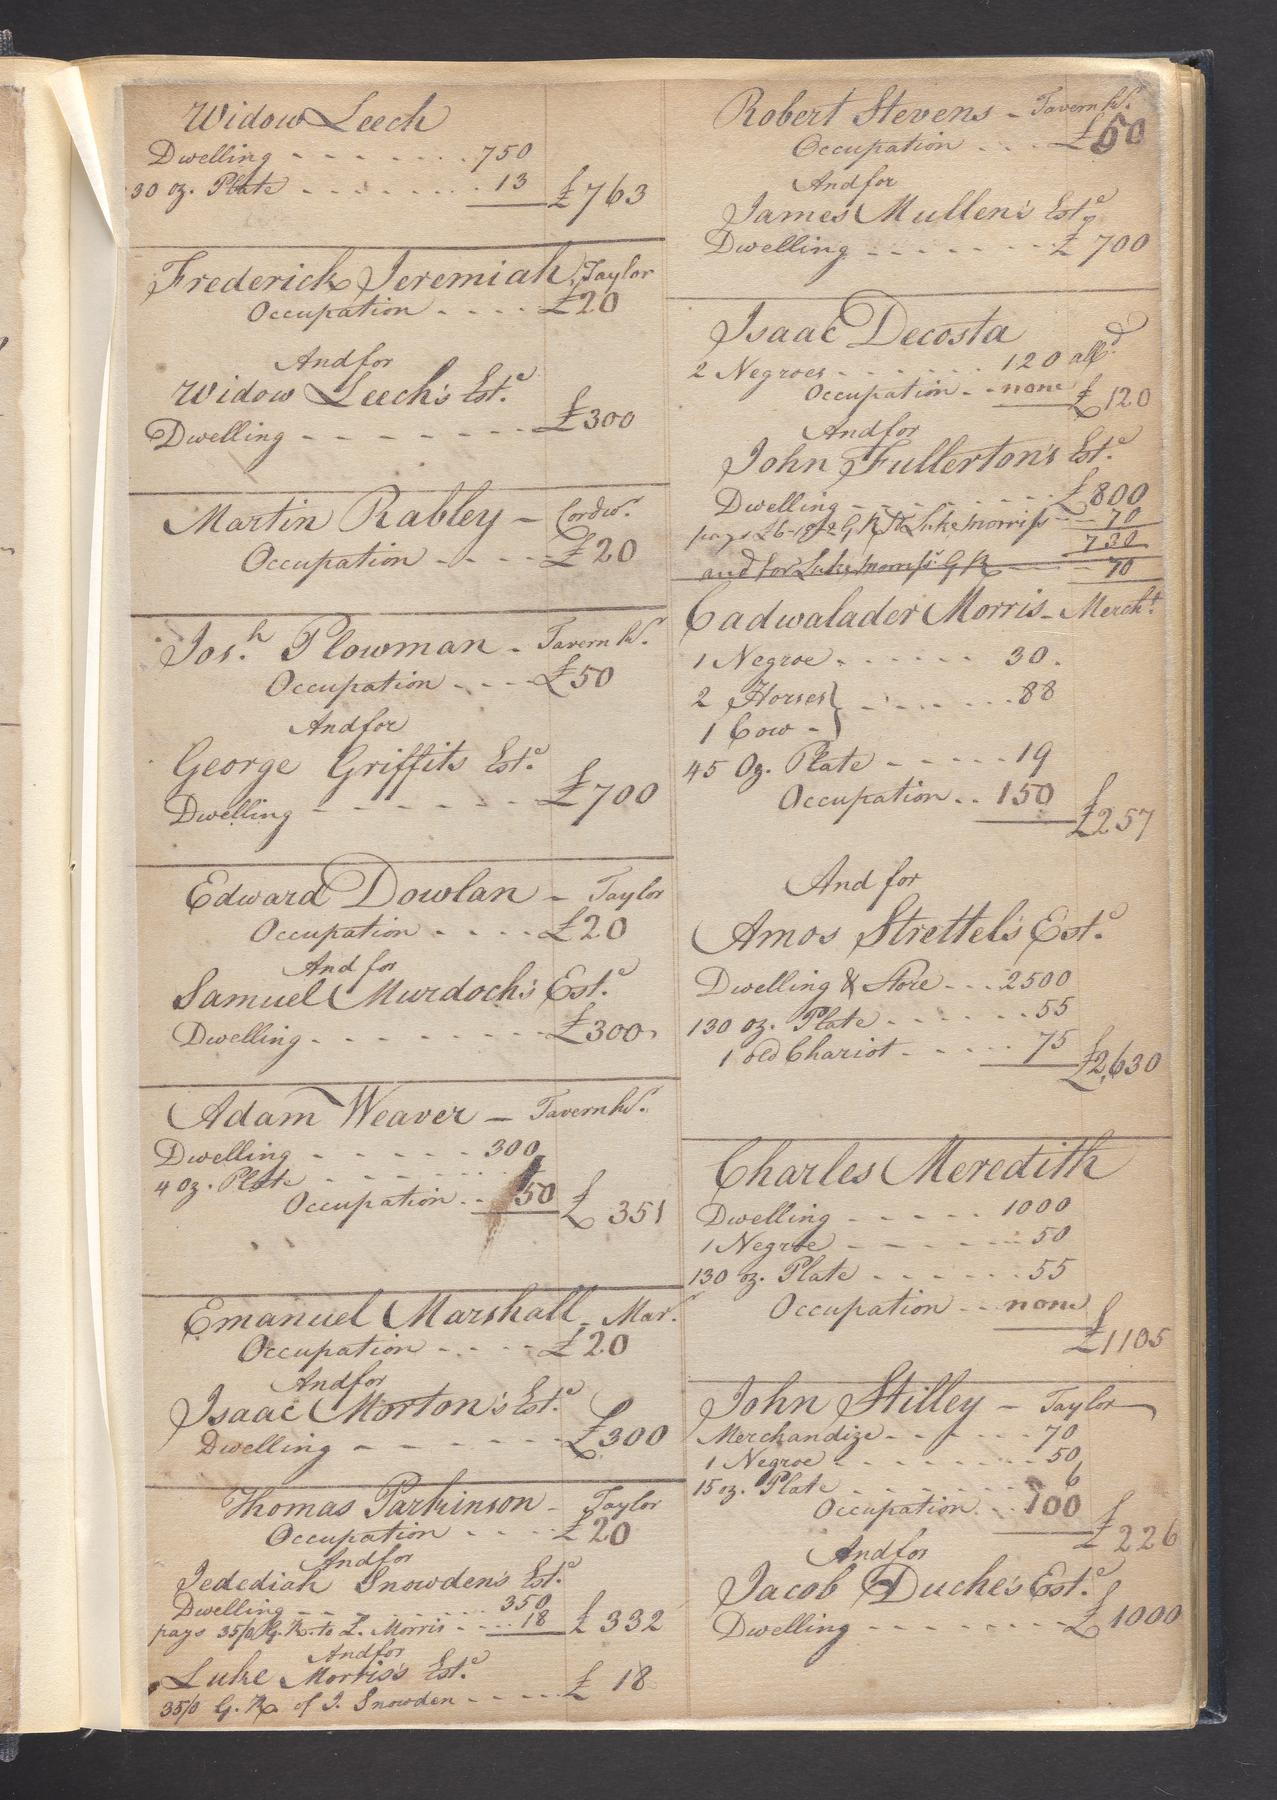 Widow Leech
Dwelling - - - - - - - . 750
30 oz. Plate - - - - - - - . 13 £763
Frederick Jeremiah, Taylor
Occupation - - - - £20
And for
Widow Leech's Est.e
Dwelling - - - - - - - - £300
Martin Rabley - Cordw.r
Occupation - - - - £20
Jos.h Plowman - Tavern kr.
Occupation - - - - £50
And for
George Griffits Est.e
Dwelling - - - - - - £700
Edward Dowlan - Taylor
Occupation - - - - £20
And for
Samuel Murdoch's Est.e
Dwelling - - - - - - - £300
Adam Weaver - Tavern kr.
Dwelling - - - - - - 300
4 oz. Plate - - - - - -
Occupation - . 50 £351
Emanuel Marshall - Mar.r
Occupation - - - - £20
And for
Isaac Morton's Est.e
Dwelling - - - - - - £300
Thomas Parkinson - Taylor
Occupation - - - - £20
And for
Jedediah Snowden's Est.e
Dwelling - - - - - - - 350
pays 35/0 G. R. to L. Morris - - - . 18 £332
And for
Luke Morris's Est.e
35/0 G. R. of J. Snowden - - - - £18
Robert Stevens - Tavern kr.
Occupation . . . £50
And for
James Mullen's Est.e
Dwelling - - - - - - £700
Isaac Decosta
2 Negroes - - - - - - - 120 all.d
Occupation - - none £120
And for
John Fullerton's Est.e
Dwelling - - - - - - £800
pays G R to Luke Morriss - - 70
730
and for Luke Morriss' G R - - 70
Cadwalader Morris - Merch.t
1 Negroe - - - - - - 30.
2 Horses } - - - - - . 88
1 Cow - }
45 Oz. Plate - - - - - 19
Occupation . . 150 £257
And for
Amos Strettel's Est.e
Dwelling & Store - - - 2500
130 oz. Plate - - - - - - 55
1 old Chariot - - - - - 75 £2,630
Charles Meredith
Dwelling - - - - - 1000
1 Negroe - - - - - - 50
130 oz. Plate - - - - - - 55
Occupation - - none
£1105
John Stilley - Taylor
Merchandize - - - - - - 70
1 Negroe - - - - - - - - 50
15 oz. Plate - - - - - - 6
Occupation . . 100 £226
And for
Jacob Duche's Est.e
Dwelling - - - - - - - £1000